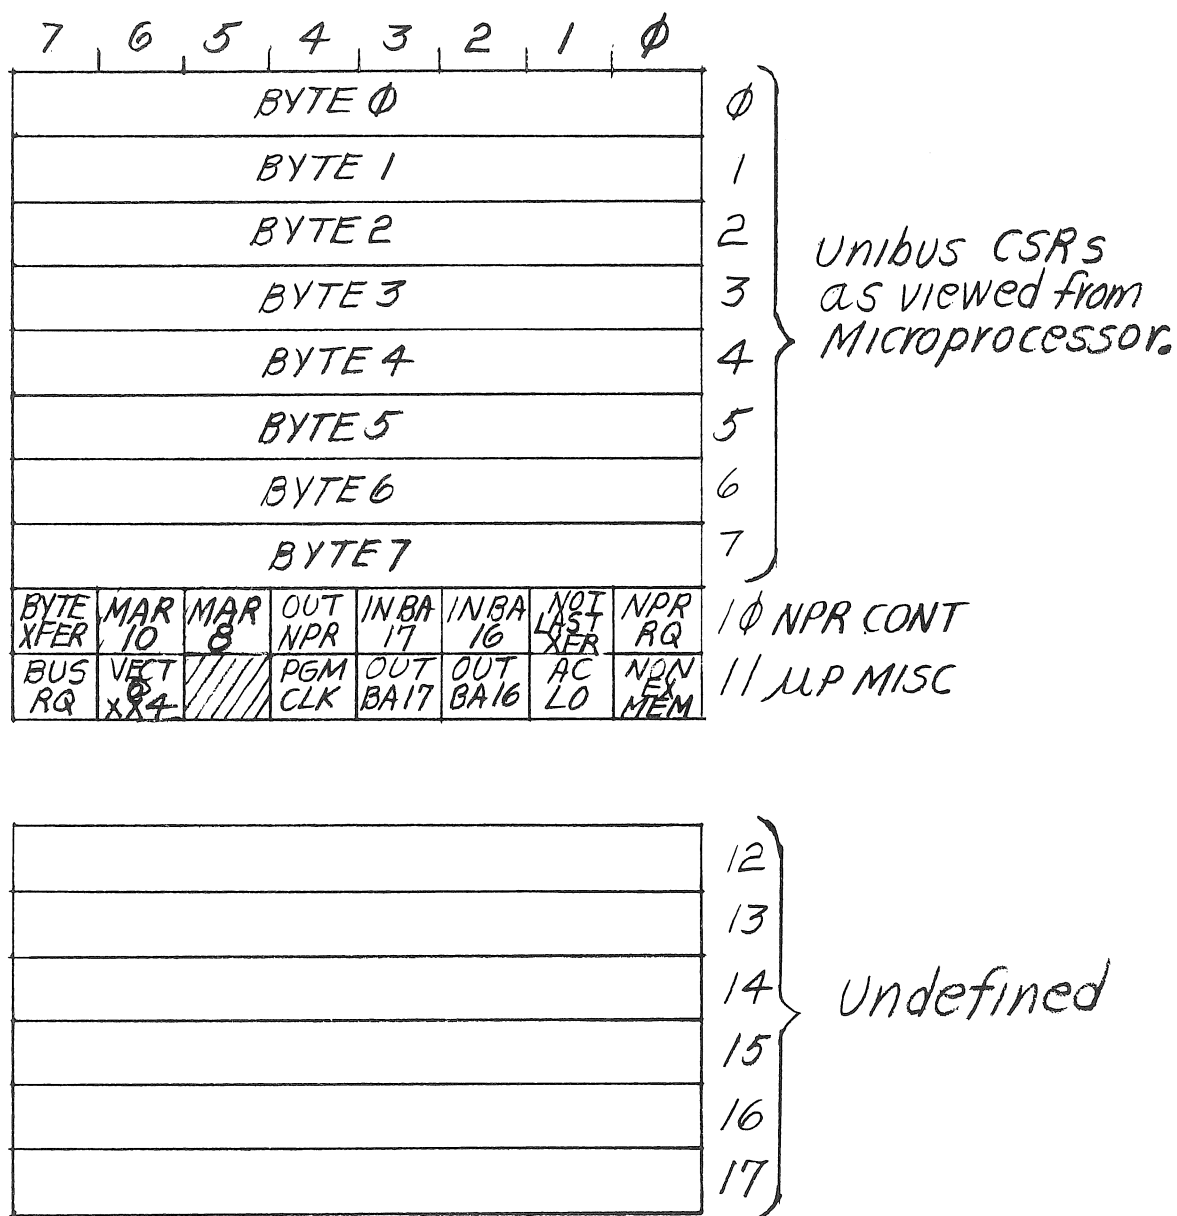 7 6 5 4 3 2 1 Ø
BYTE Ø Ø
BYTE 1 1
BYTE 2 2
BYTE 3 3
BYTE 4 4
BYTE 5 5
BYTE 6 6
BYTE 7 7
Unibus CSRs
as viewed from
Microprocessor.
BYTE XFER
MAR 10
MAR 8
OUT NPR
IN BA 17
IN BA 16
NOT LAST XFR
NPR RQ
1Ø NPR CONT
BUS RQ
VECT @ XX4
PGM CLK
OUT BA17
OUT BA16
AC LO
NON EX MEM
11 µP MISC
12
13
14
15
16
17
Undefined